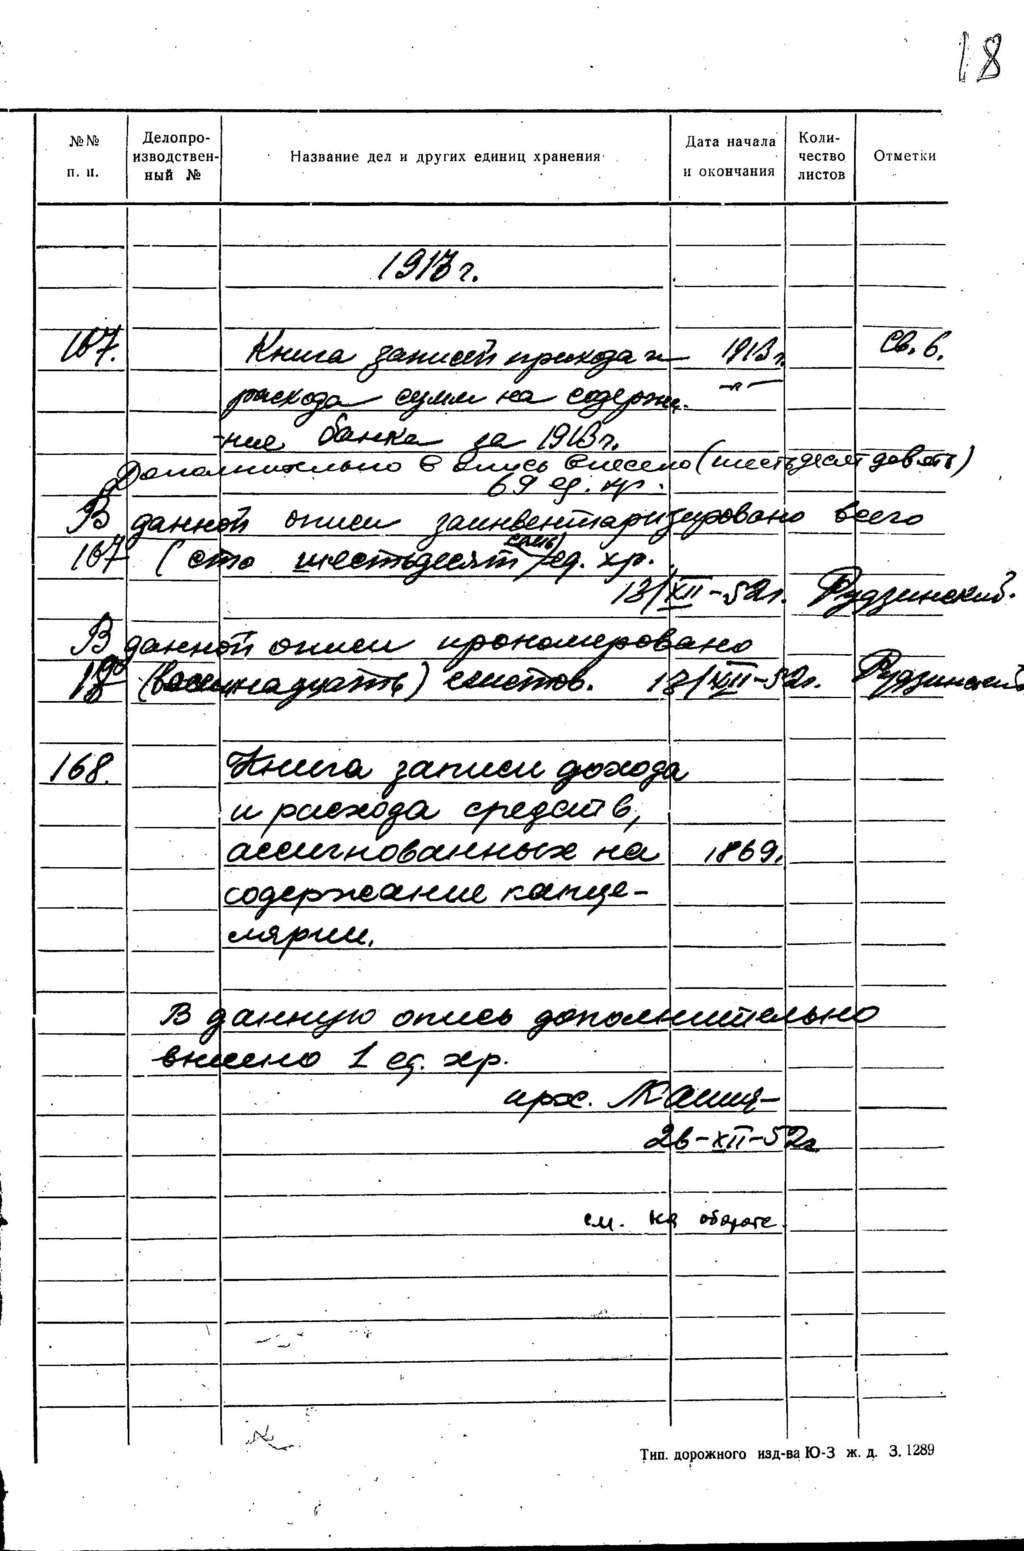 18
№№ п. п.
Делопро-
изводствен-
ный №
Название дел и других единиц хранения
Дата начала
и окончания
Коли-
чество
листов
Отметки
1913 г.
167. Книга записей прихода и 1913 г. Св. 6.
расхода сумм на содержа- -"-
ние банка за 1913 г.
Дополнительно в опись внесено (шестьдесят девять)
69 ед. хр.
В данной описи заинвентаризировано всего
167 (сто шестьдесят семь) ед. хр.
13/XII-52г. Рудзинский.
В данной описи прономеровано
18 (восемнадцать) листов. 13/XII-52г. Рудзинский
168. Книга записи дохода
и расхода средств,
ассигнованных на 1869.
содержание канце-
лярии.
В данную опись дополнительно
внесено 1 ед. хр.
арх.
26-XII-52г.
см. на обороте.
Тип. дорожного изд-ва Ю-З ж. д. З. 1289